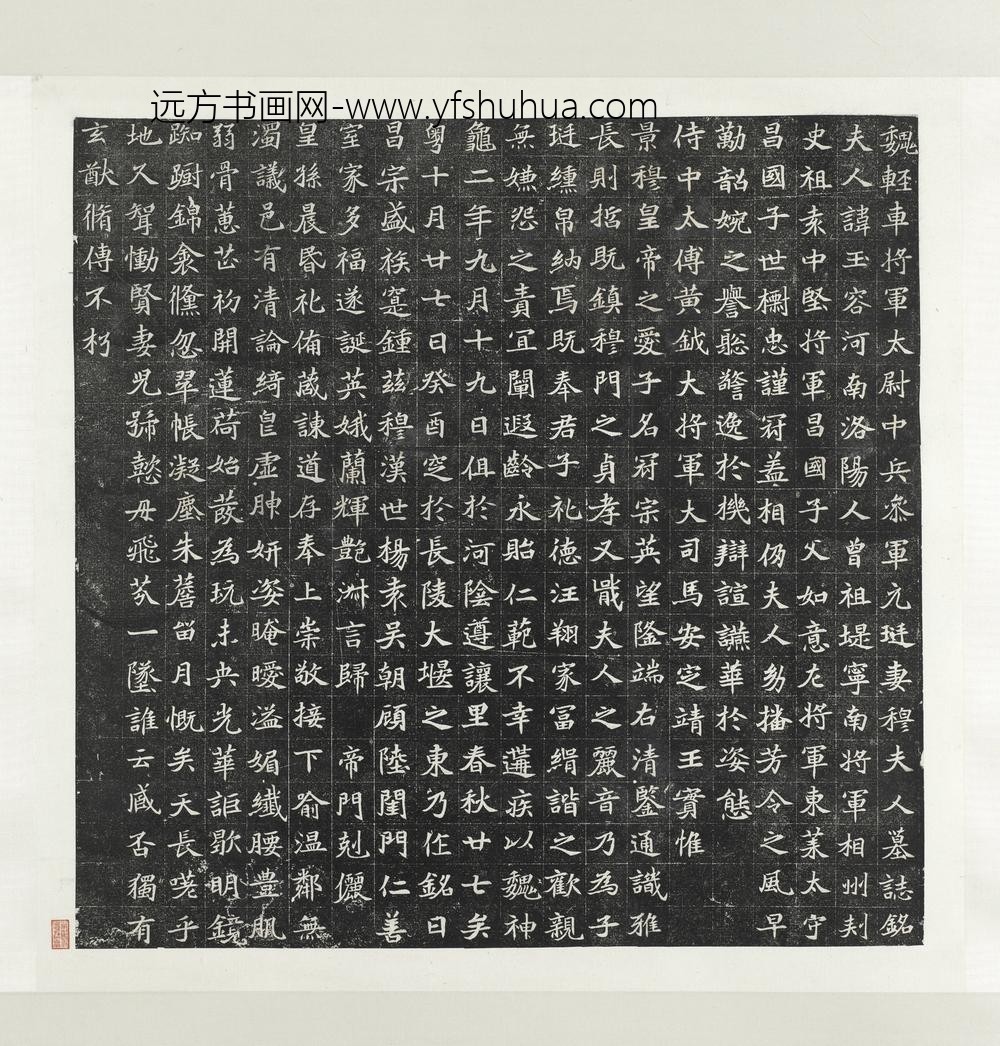 远方书画网-www.yfshuhua.com
魏輕車將軍太尉中兵叅軍元珽妻穆夫人墓誌銘
夫人諱玉容河南洛陽人曾祖堤寧南將軍相州刾
史祖袁中堅將軍昌國子父如意左將軍東萊太守
昌國子世㯗忠謹冠盖相仍夫人幼播芳令之風早
勤韶婉之譽聡警逸於機辯諠讌華於姿態
侍中太傅黃鉞大將軍大司馬安定靖王實惟
景穆皇帝之愛子名冠宗英望隆端右清鑒通識雅
長則哲既鎮穆門之貞孝又戢夫人之麗音乃為子
珽纁帛納焉既奉君子礼德汪翔家冨緝諧之歡親
無嫌怨之責冝闡遐齡永貽仁範不幸遘疾以魏神
龜二年九月十九日俎於河陰遵讓里春秋廿七矣
粵十月廿七日癸酉窆於長陵大堰之東乃作銘曰
昌宗盛族寔鍾茲穆漢世楊袁吳朝顧陸閨門仁善
室家多福遂誕英娥蘭輝艷淋言歸 帝門剋儷
皇孫晨昏礼俻葴諫道存奉上崇敬接下喻温鄰無
濁議邑有清論綺皃虛胂妍姿晻曖溢媚纖腰豊肌
弱骨蕙芷初開蓮荷始發為玩未央光華詎歇明鏡
踟蹰錦衾儵忽翠帳凝塵朱簷留月慨矣天長嗟乎
地久聟慟賢妻兒號慈母飛芬一墜誰云臧否獨有
玄猷脩傳不朽